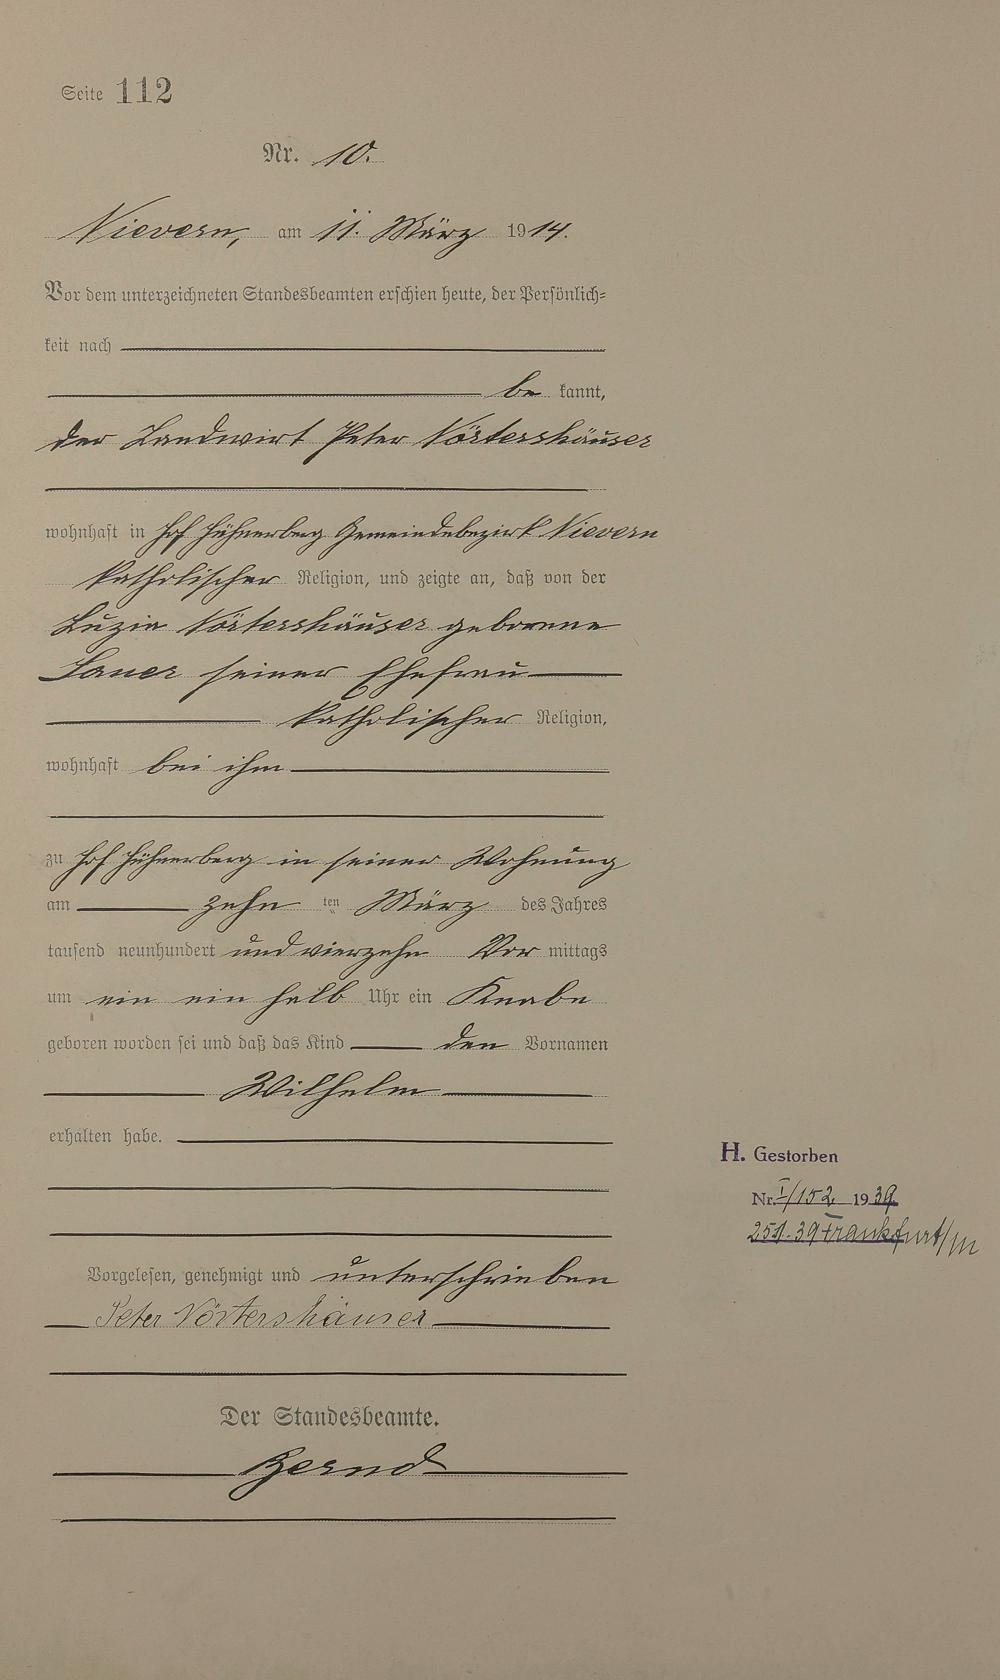 Seite 112
Nr. 10.
Nievern, am 11. März 1914.
Vor dem unterzeichneten Standesbeamten erschien heute, der Persönlich=
keit nach
be kannt,
der Landwirt Peter Nörtershäuser
wohnhaft in Hof Hühnerberg Gemeindebezirk Nievern
katholischer Religion, und zeigte an, daß von der
Luzia Nörtershäuser geborene
Sauer seiner Ehefrau
katholischer Religion,
wohnhaft bei ihm
zu Hof Hühnerberg in seiner Wohnung
am zehn ten März des Jahres
tausend neunhundert und vierzehn Vor mittags
um ein ein halb Uhr ein Knabe
geboren worden sei und daß das Kind den Vornamen
Wilhelm
erhalten habe.
H. Gestorben
Nr. I/152 1939
Frankfurt/M
Vorgelesen, genehmigt und unterschrieben
Peter Nörtershäuser
Der Standesbeamte.
Bernd